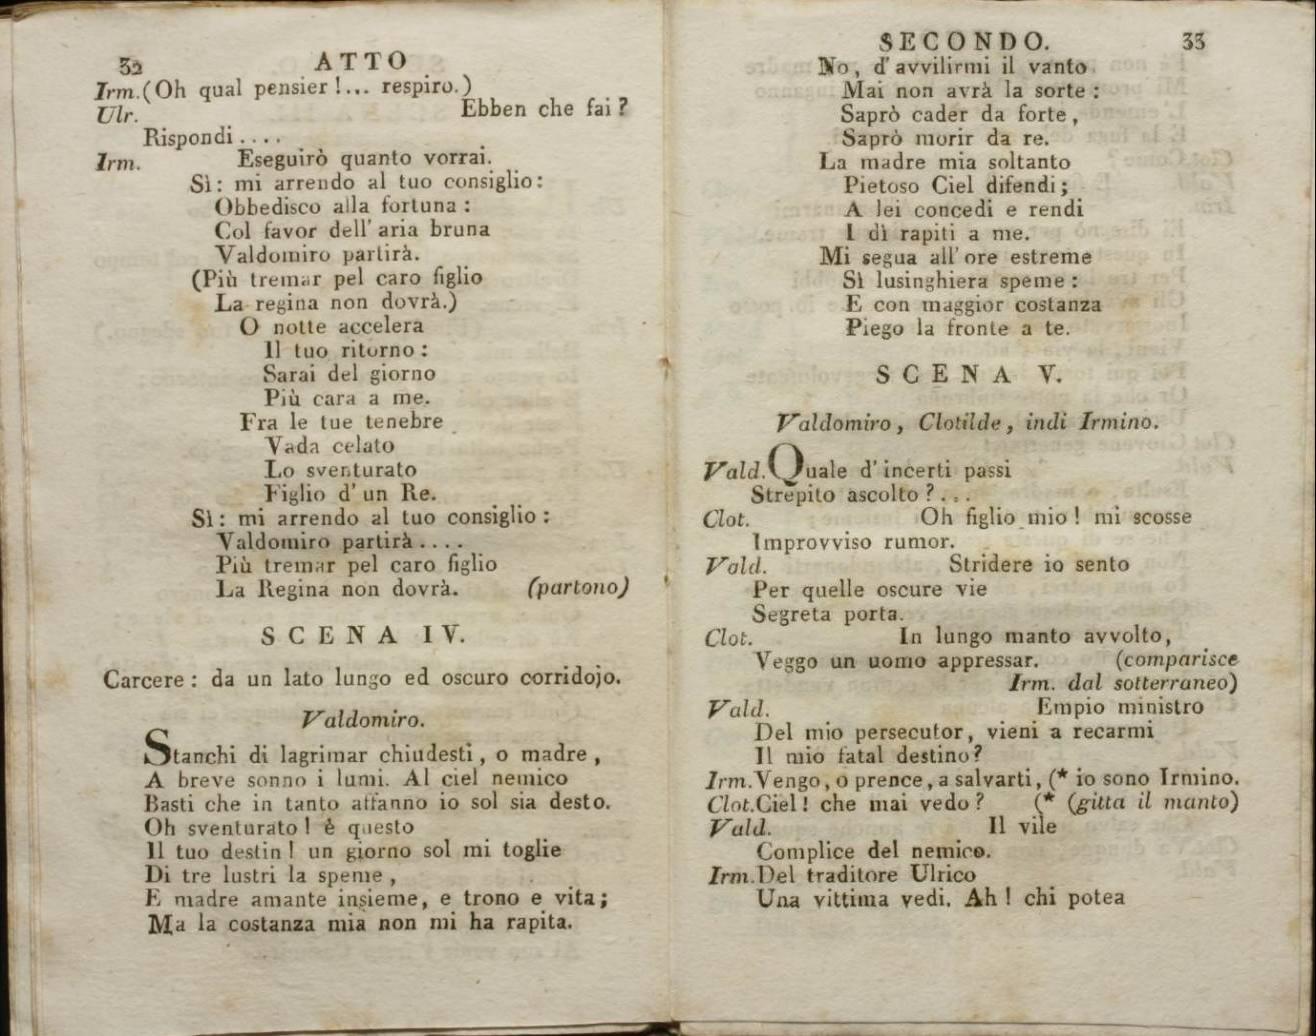 32 ATTO
Irm.(Oh qual pensier!... respiro.)
Ulr. Ebben che fai?
Rispondi....
Irm. Eseguirò quanto vorrai.
Sì: mi arrendo al tuo consiglio:
Obbedisco alla fortuna:
Col favor dell' aria bruna
Valdomiro partirà.
(Più tremar pel caro figlio
La regina non dovrà.)
O notte accelera
Il tuo ritorno:
Sarai del giorno
Più cara a me.
Fra le tue tenebre
Vada celato
Lo sventurato
Figlio d' un Re.
Sì: mi arrendo al tuo consiglio:
Valdomiro partirà....
Più tremar pel caro figlio
La Regina non dovrà. (partono)
SCENA IV.
Carcere: da un lato lungo ed oscuro corridojo.
Valdomiro.
Stanchi di lagrimar chiudesti, o madre,
A breve sonno i lumi. Al ciel nemico
Basti che in tanto affanno io sol sia desto.
Oh sventurato! è questo
Il tuo destin! un giorno sol mi toglie
Di tre lustri la speme,
E madre amante insieme, e trono e vita;
Ma la costanza mia non mi ha rapita.
SECONDO. 33
No, d' avvilirmi il vanto
Mai non avrà la sorte:
Saprò cader da forte,
Saprò morir da re.
La madre mia soltanto
Pietoso Ciel difendi;
A lei concedi e rendi
I dì rapiti a me.
Mi segua all' ore estreme
Sì lusinghiera speme:
E con maggior costanza
Piego la fronte a te.
SCENA V.
Valdomiro, Clotilde, indi Irmino.
Vald. Quale d' incerti passi
Strepito ascolto?...
Clot. Oh figlio mio! mi scosse
Improvviso rumor.
Vald. Stridere io sento
Per quelle oscure vie
Segreta porta.
Clot. In lungo manto avvolto,
Veggo un uomo appressar. (comparisce
Irm. dal sotterraneo)
Vald. Empio ministro
Del mio persecutor, vieni a recarmi
Il mio fatal destino?
Irm. Vengo, o prence, a salvarti, (* io sono Irmino.
Clot. Ciel! che mai vedo? (* (gitta il manto)
Vald. Il vile
Complice del nemico.
Irm. Del traditore Ulrico
Una vittima vedi. Ah! chi potea